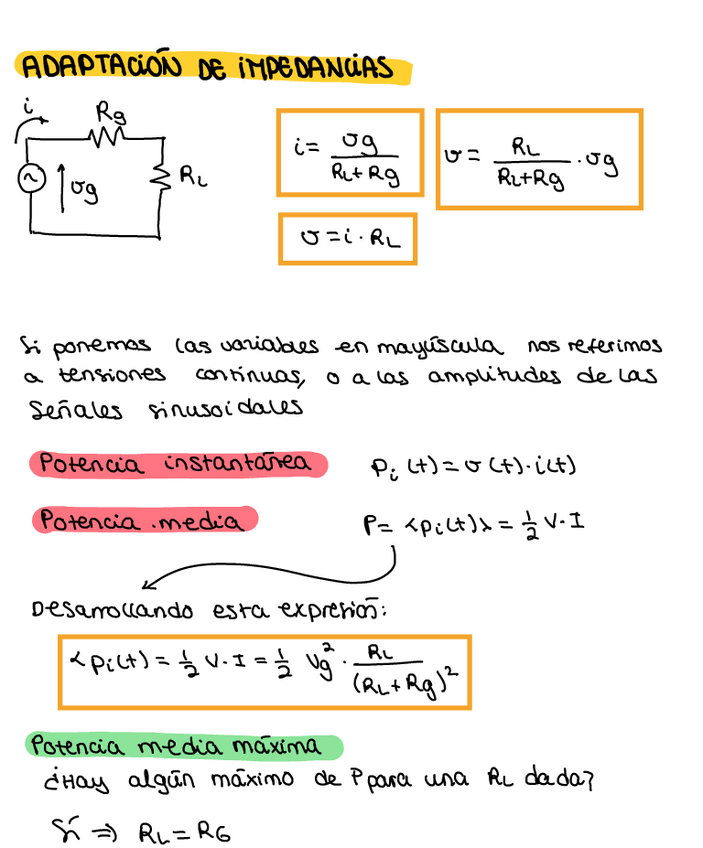 ADAPTACIÓN DE IMPEDANCIAS
i
Rg
vg
RL
i = vg / (RL + Rg)
v = RL / (RL + Rg) · vg
v = i · RL
Si ponemos las variables en mayúscula nos referimos
a tensiones continuas, o a las amplitudes de las
señales sinusoidales
Potencia instantánea
Pi (t) = v (t) · i(t)
Potencia media
P = <pi(t)> = 1/2 V · I
Desarrollando esta expresión:
<pi(t) = 1/2 V · I = 1/2 Vg² · RL / (RL + Rg)²
Potencia media máxima
¿Hay algún máximo de P para una RL dada?
Sí ⇒ RL = RG